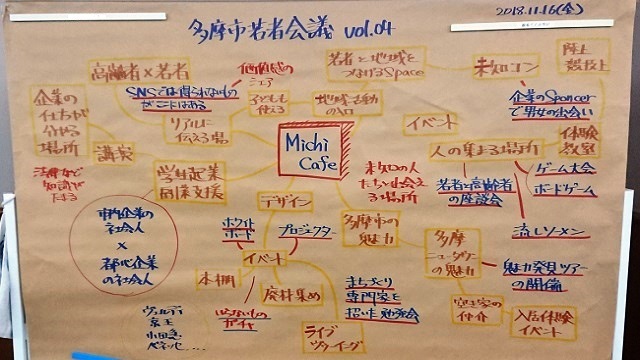 2018.11.16(金)
多摩市若者会議 vol.04
高齢者×若者
価値感の
シェア
若者と地域を
つなげるSpace
陸上
競技上
企業の
仕事が
分かる
場所
SNSでは得られないもの
がここにはある
子どもも
使える
地域活動
の入口
企業のSponcer
で男女の出会い
リアルに
伝える場
イベント
体験
教室
講演
Michi
Cafe
人の集まる場所
ゲーム大会
ボードゲーム
学生起業
同様支援
たちと出会え
る場所
若者と高齢者
の座談会
デザイン
市内企業の
社会人
×
都心企業
の社会人
ホワイト
ボード
プロジェクター
多摩市の
魅力
多摩
ニュータウン
の魅力
流しソーメン
魅力発見ツアー
の開催
イベント
本棚
廃材集め
まちづくり
専門家を
招いた勉強会
空き家の
仲介
入居体験
イベント
いらないもの
ガチャ
ライブ
ヴェルディ
京王
小田急
ベネッセ……